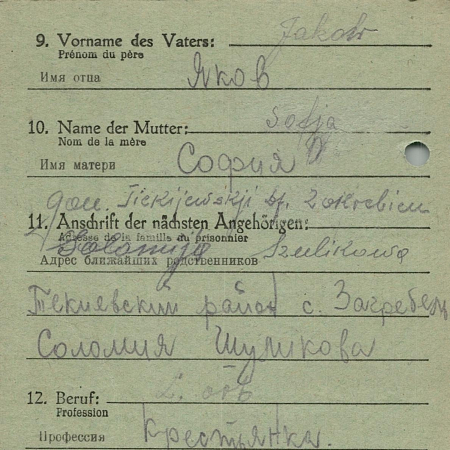 9. Vorname des Vaters: Jakob
Prénom du père
Имя отца Яков
10. Name der Mutter: Sofja
Nom de la mère
Имя матери София
Tiekijewskji Zakrebiec
11. Anschrift der nächsten Angehörigen:
Adresse de la famille du prisonnier
Solomija Szulikowa
Адрес ближайших родственников
Текиевский район с. Загребец
Соломия Шуликова
12. Beruf:
Profession
Профессия Крестьянка.